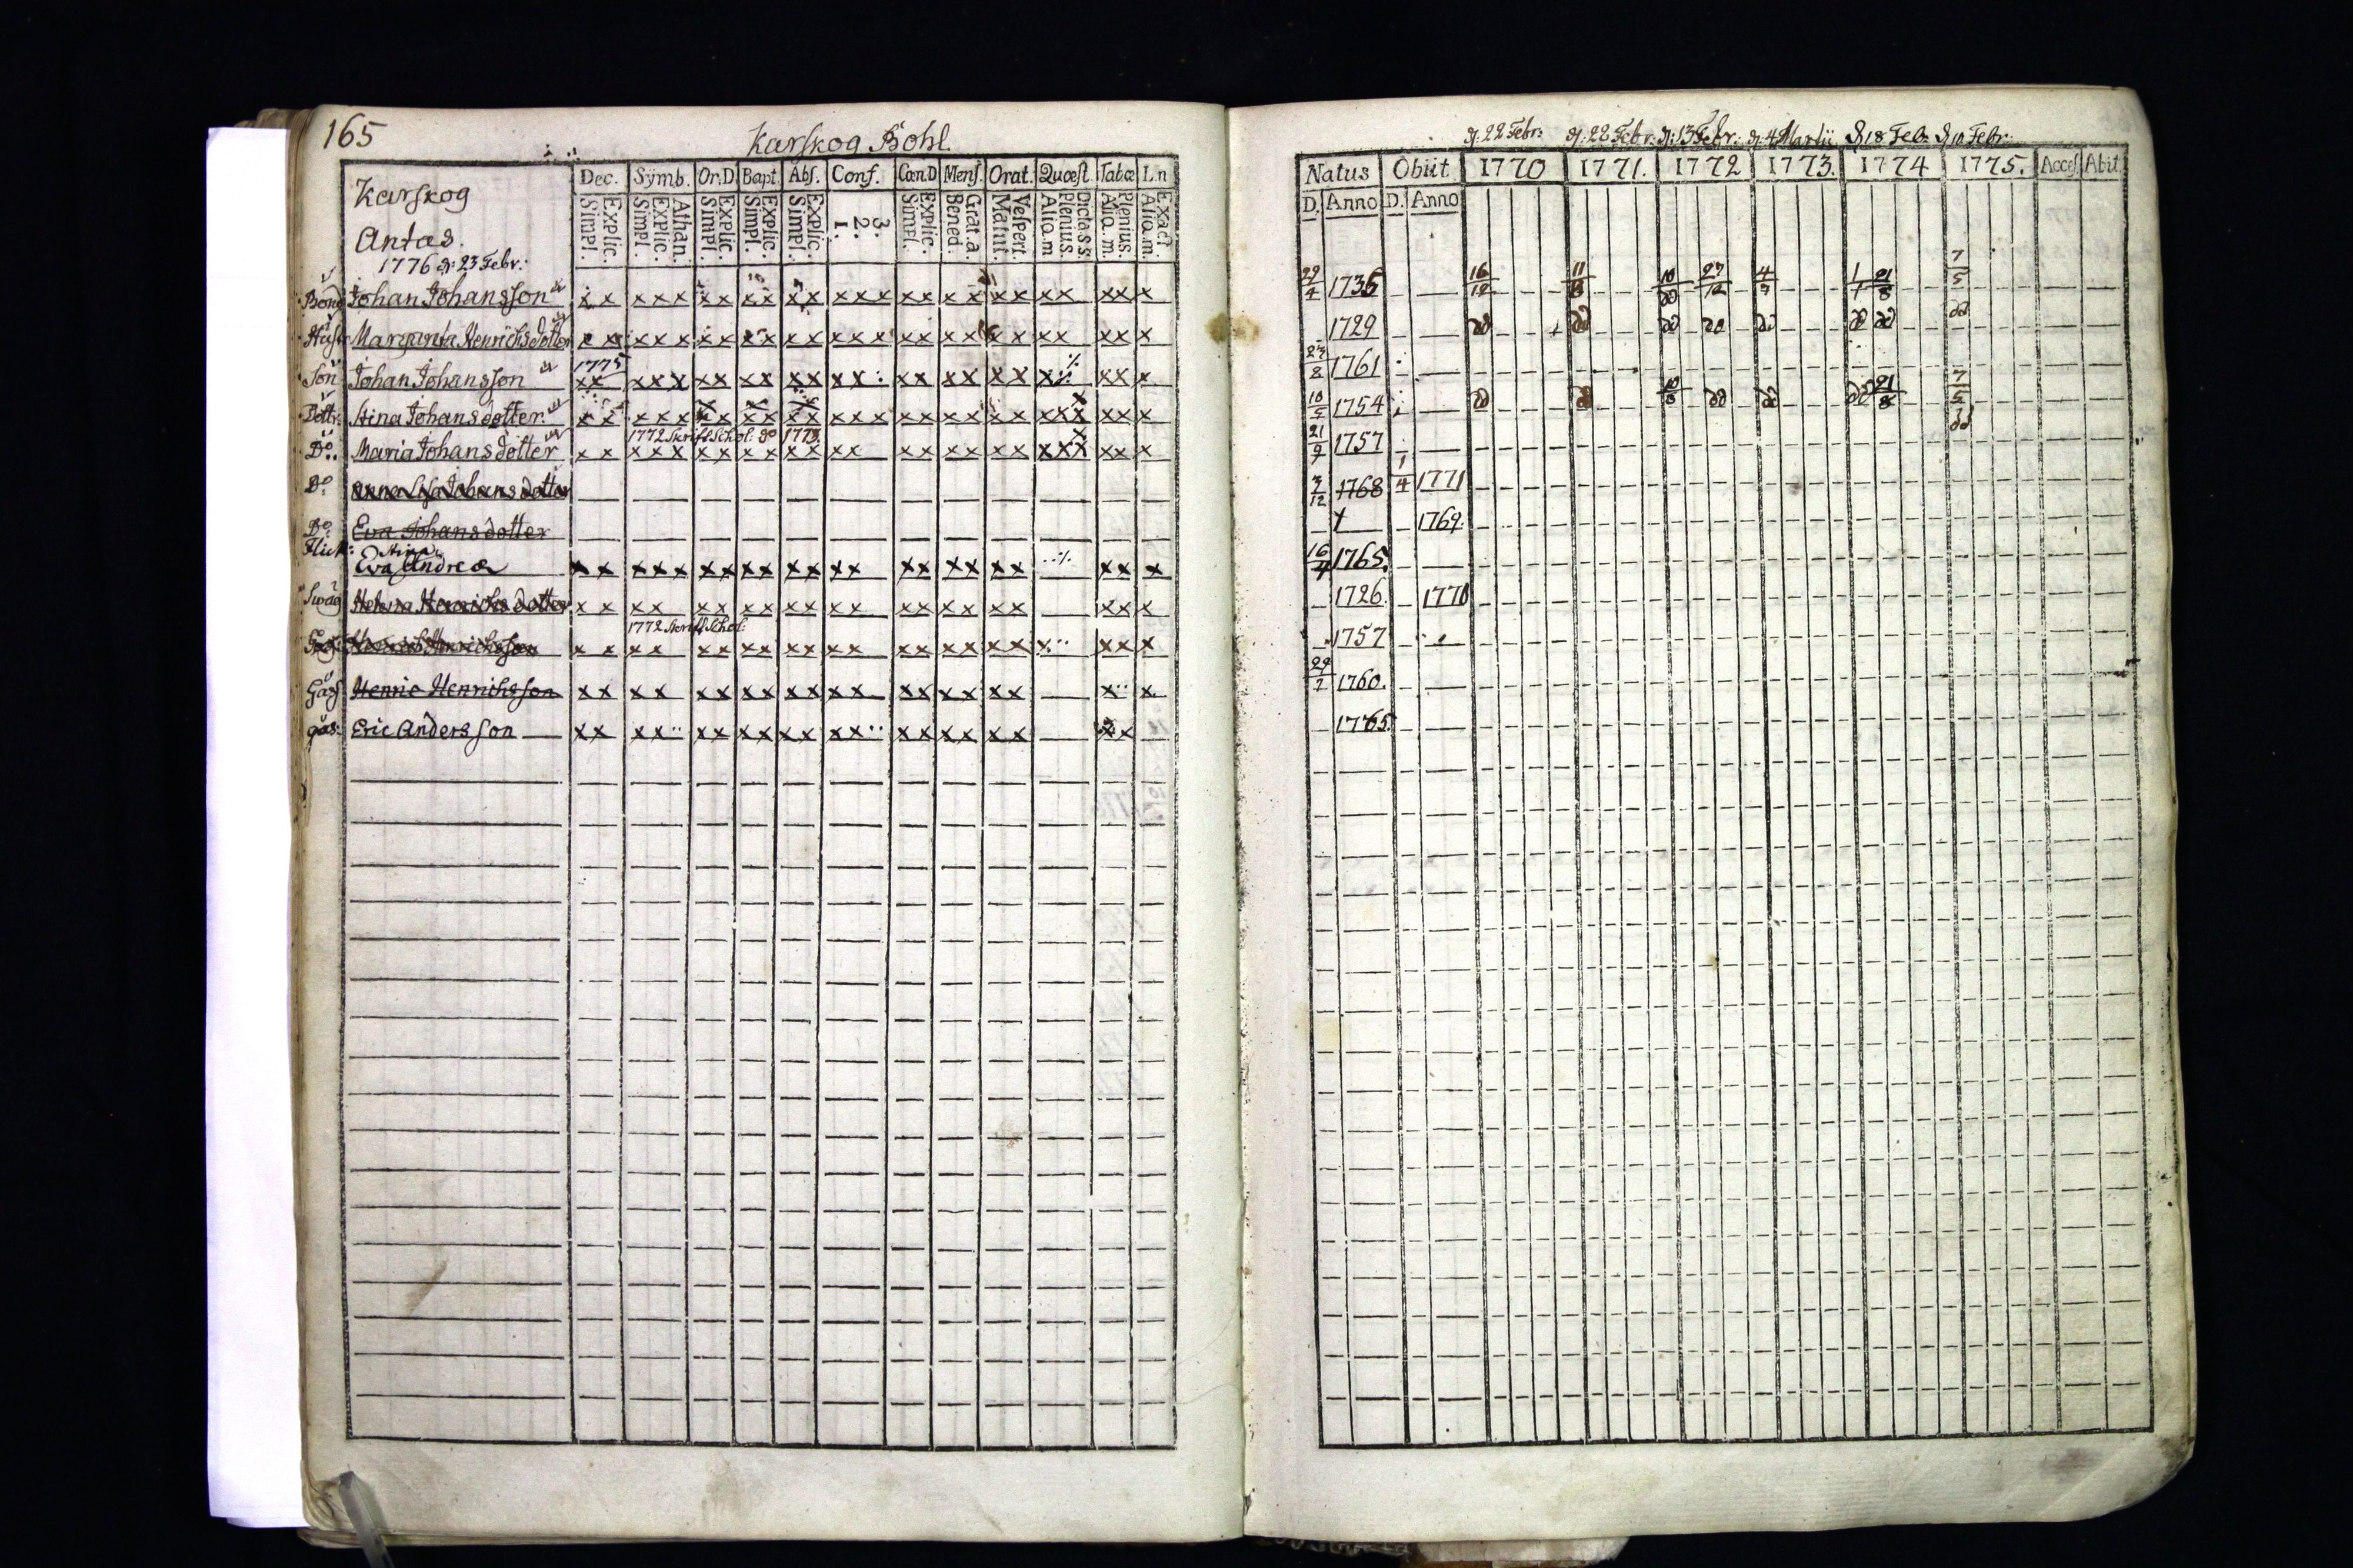 165
Karskog Bohl.
Dec. Symb. Or.D Bapt. Abs. Conf. Cœn.D Mens. Orat. Quæst. Tabœ L.n
Karskog
Antas.
1776 d: 23 Febr:
Simpl. Explic. Simpl. Explic. Athan. Simpl. Explic. Simpl. Explic. Simpl. Explic. 1. 2. 3. Simpl. Explic. Bened. Grat.a. Matut. Vespert. Aliq.m Plenius. Dicta.s.s Aliq.m. Plenius. Aliq.m. Exact
Bond Johan Johansson x x x x x x x x x x x x x x x x x x x x x x x x x
Hust Margareta Henrichsdotter x x x x x x x x x x x x x x x x x x x x x x x x
1775
Son Johan Johansson x x x x x x x x x x x x x : x x x x x x x x x x
Dottr. Stina Johansdotter x x x x x x x x x x x x x x x x x x x x x x x x x
1772 Skrift Schol. do 1773.
Do. Maria Johansdotter x x x x x x x x x x x x x x x x x x x x x x x x
Do Anna Lisa Johansdotter
Do Eva Johansdotter
Flick: Stina
Eva Andreæ x x x x x x x x x x x x x x x x x x x x x x
Swäg Helena Henrichsdotter x x x x x x x x x x x x x x x x x x x x x
1772 Skrift Schol.
Henrichsson x x x x x x x x x x x x x x x x x x x x x x
Gåss Henric Henrichsson x x x x x x x x x x x x x x x x x x x x
gås: Eric Andersson x x x x x x x x x x x x x x x x x x x x
d: 22 Febr: d: 22 Febr: d: 13 Febr: d: 4 Martii d 18 Feb. d 10 Febr:
Natus Obiit 1770 1771. 1772 1773. 1774 1775. Acces. Abit.
D. Anno D. Anno
29/4 1736 16/12 11/8 10/ 27/12 4/ 1/1 21/8 7/5
1729
23/8 1761
10/5 1754 10/ 21/8 7/5
21/9 1757
3/12 1768 1/4 1771
1769.
16/4 1765.
1726. 1770
1757
29/ 1760.
1765.